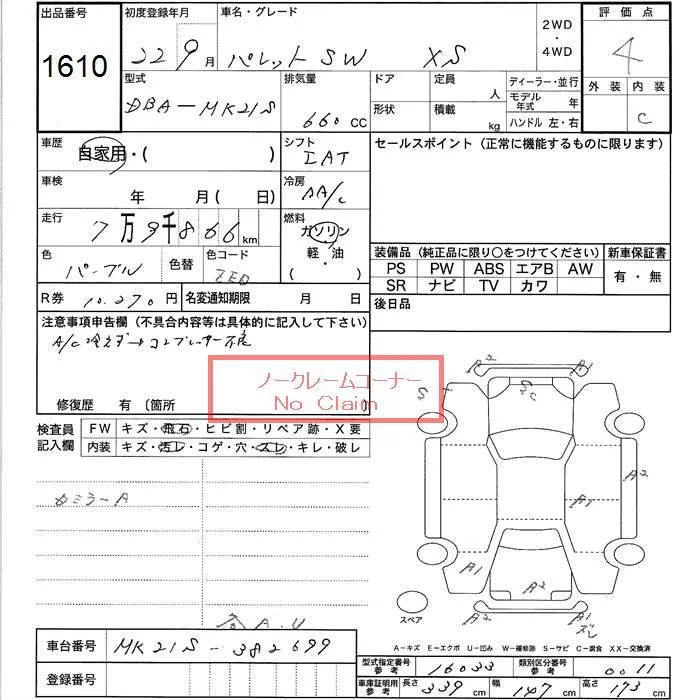 出品番号 初度登録年月 車名・グレード 2WD ・ 4WD 評価点
1610 22 9月 パレットSW XS 4
型式 排気量 ドア 定員 人 ディーラー・並行 外装 内装
DBA-MK21S 660cc 形状 積載 kg モデル年式 年 C
ハンドル 左・右
車歴 自家用・( ) シフト IAT セールスポイント(正常に機能するものに限ります)
車検 年 月( 日) 冷房 AA/C
走行 7万9千866km 燃料 ガソリン 軽・油 ( ・ )
色 パープル 色替 色コード ZED
装備品(純正品に限り○をつけてください) 新車保証書
PS PW ABS エアB AW 有・無
SR ナビ TV カワ
R券 10,270円 名変通知期限 月 日 後日品
注意事項申告欄(不具合内容等は具体的に記入して下さい)
A/C冷えず→コンプレッサー不良
ノークレームコーナー
No Claim
修復歴 有〔箇所 〕
検査員記入欄 FW キズ・飛石・ヒビ割・リペア跡・X要
内装 キズ・汚レ・コゲ・穴・スレ・キレ・破レ
A2 A1
S Sc
A2
A1
A1 A2
A1
スペア
A-キズ E-エクボ U-凹み W-補修跡 S-サビ C-腐食 XX-交換済
A.U
車台番号 MK21S-382699
登録番号
型式指定番号参考 16033 類別区分番号参考 0011
車庫証明用参考 長さ 339cm 幅 147cm 高さ 173cm